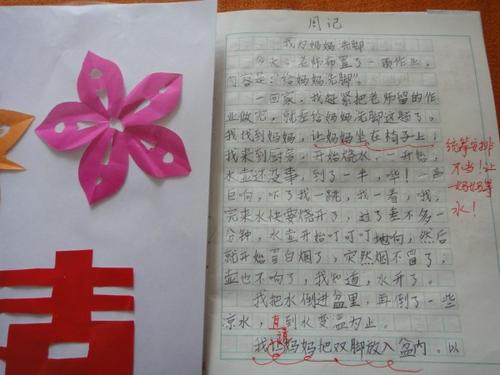 周记
我为妈妈洗脚
今天,老师布置了一项作业,
内容是:“给妈妈洗脚”。
一回家,我赶紧把老师留的作
业做完,就去给妈妈洗脚这题了。
我找到妈妈,让妈妈坐在椅子上,
我来到厨房,开始烧水,一开始,
水壶还没事,到了一半,哗!一声
巨响,吓了我一跳,我一看,哦,
完来水快要烧开了,过了差不多一
分钟,水壶开始叮叮叮地向,然后
就开始冒白烟了,突然烟不冒了,
壶也不响了,我知道,水开了。
我把水倒进盆里,再倒了一些
凉水,直到水变温为止。
我让妈妈把双脚放入盆内,以
统筹安排
不当!让
妈妈等
水!